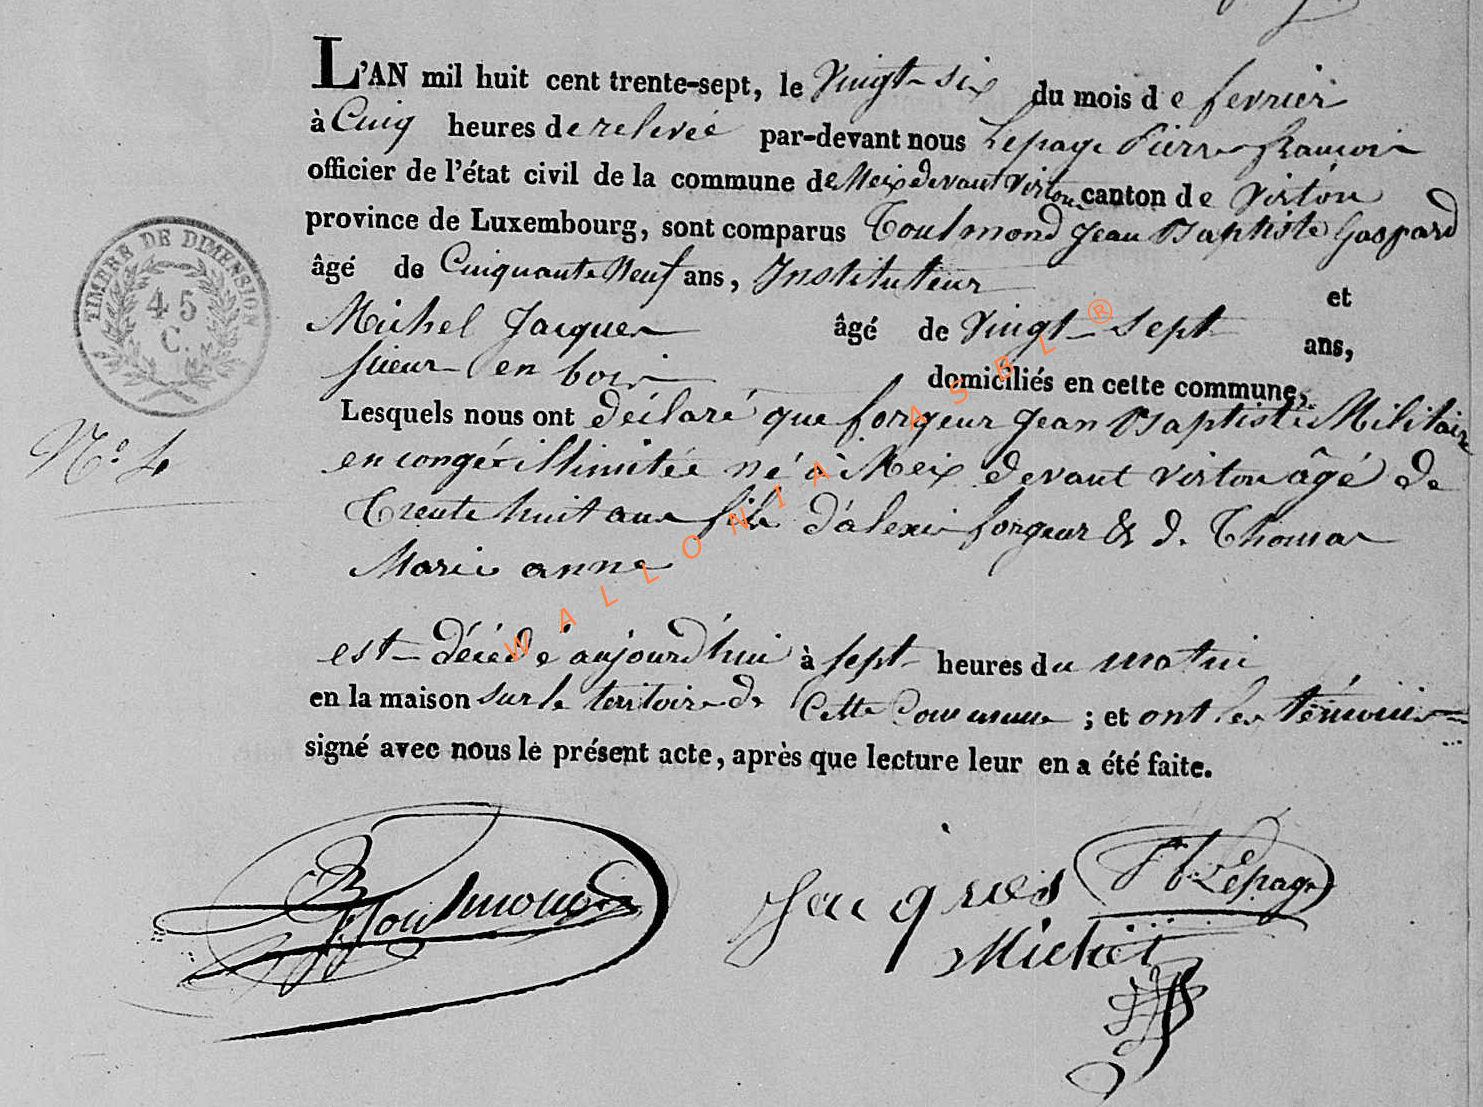 L'AN mil huit cent trente-sept, le Vingt-six du mois de fevrier
à Cinq heures de relevée par-devant nous Lepage Pierre françois
officier de l'état civil de la commune de Meix devant virton canton de Virton
province de Luxembourg, sont comparus Toulmond Jean Baptiste Gaspard
âgé de Cinquante Neuf ans, Instituteur et
Michel Jacques âgé de Vingt-Sept ans,
scieur en bois domiciliés en cette commune,
Lesquels nous ont déclaré que forgeur Jean Baptiste Militaire
en congée illimitée né à Meix devant virton âgé de
Trente huit ans fils d'alexis forgeur & d. Thomas
Marie anne
est décédé aujourd'hui à sept heures du matin
en la maison sur le teritoire de Cette Commune ; et ont les témoins
signé avec nous le présent acte, après que lecture leur en a été faite.
TIMBRE DE DIMENSION
45
C.
N.° 4
Toulmond
Jacques
Michel
Lepage
WALLONIA ASBL ®